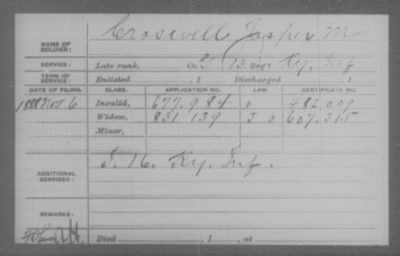 NAME OF SOLDIER: Croswell Jasper M
SERVICE: Late rank, Co. I, 13 Reg't Ky. Inf
TERM OF SERVICE: Enlisted , 1 Discharged , 1
DATE OF FILING. CLASS. APPLICATION NO. LAW. CERTIFICATE NO.
1888 Nov 6 Invalid, 677.984 482.009
Widow, 831 139 607.315
Minor,
ADDITIONAL SERVICES: I. 16. Ky. Inf.
REMARKS:
Died , 1 , at